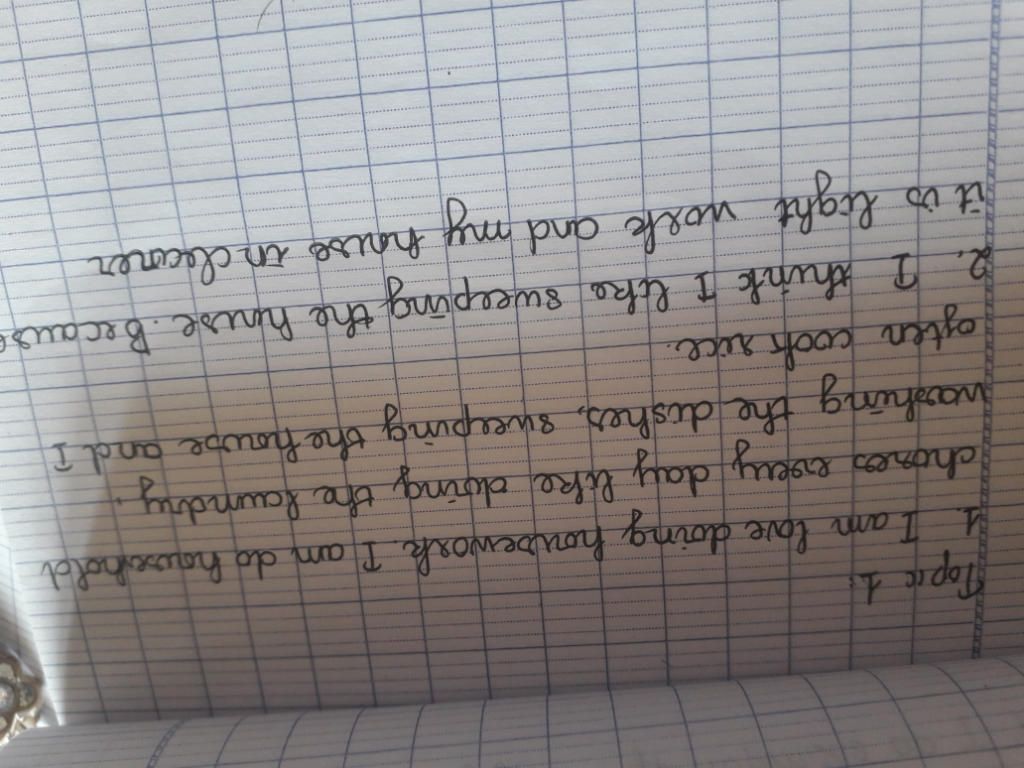 Topic 1:
1 I am love doing housework. I am do household
chores every day like doing the laundry,
washing the dishes, sweeping the house and I
often cook rice.
2. I think I like sweeping the house. Because
it is light work and my house in cleaner